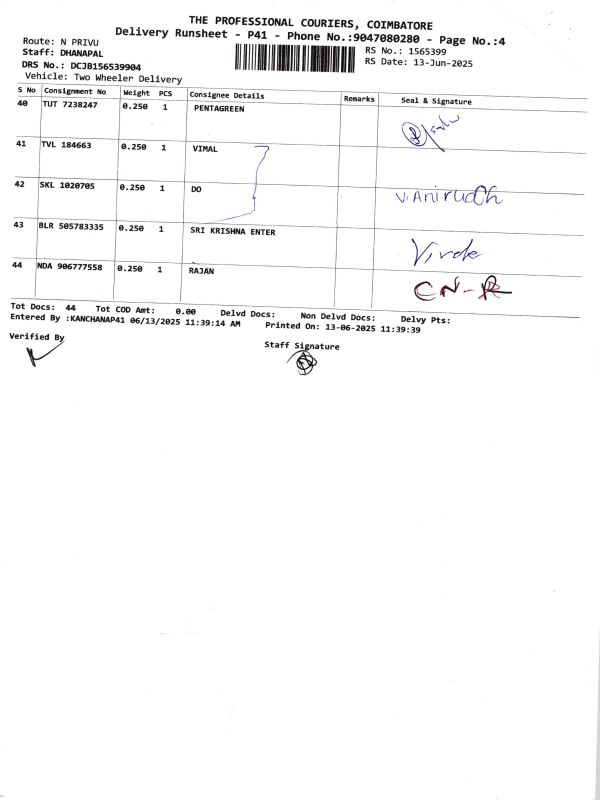 THE PROFESSIONAL COURIERS, COIMBATORE
Delivery Runsheet - P41 - Phone No.:9047080280 - Page No.:4
Route: N PRIVU
Staff: DHANAPAL
DRS No.: DCJB156539904
Vehicle: Two Wheeler Delivery
RS No.: 1565399
RS Date: 13-Jun-2025
S No Consignment No Weight PCS Consignee Details Remarks Seal & Signature
40 TUT 7238247 0.250 1 PENTAGREEN
41 TVL 184663 0.250 1 VIMAL
42 SKL 1020705 0.250 1 DO V.ANiRudCh
43 BLR 505783335 0.250 1 SRI KRISHNA ENTER
44 NDA 906777558 0.250 1 RAJAN CN-R
Tot Docs: 44 Tot COD Amt: 0.00 Delvd Docs: Non Delvd Docs: Delvy Pts:
Entered By :KANCHANAP41 06/13/2025 11:39:14 AM Printed On: 13-06-2025 11:39:39
Verified By
Staff Signature